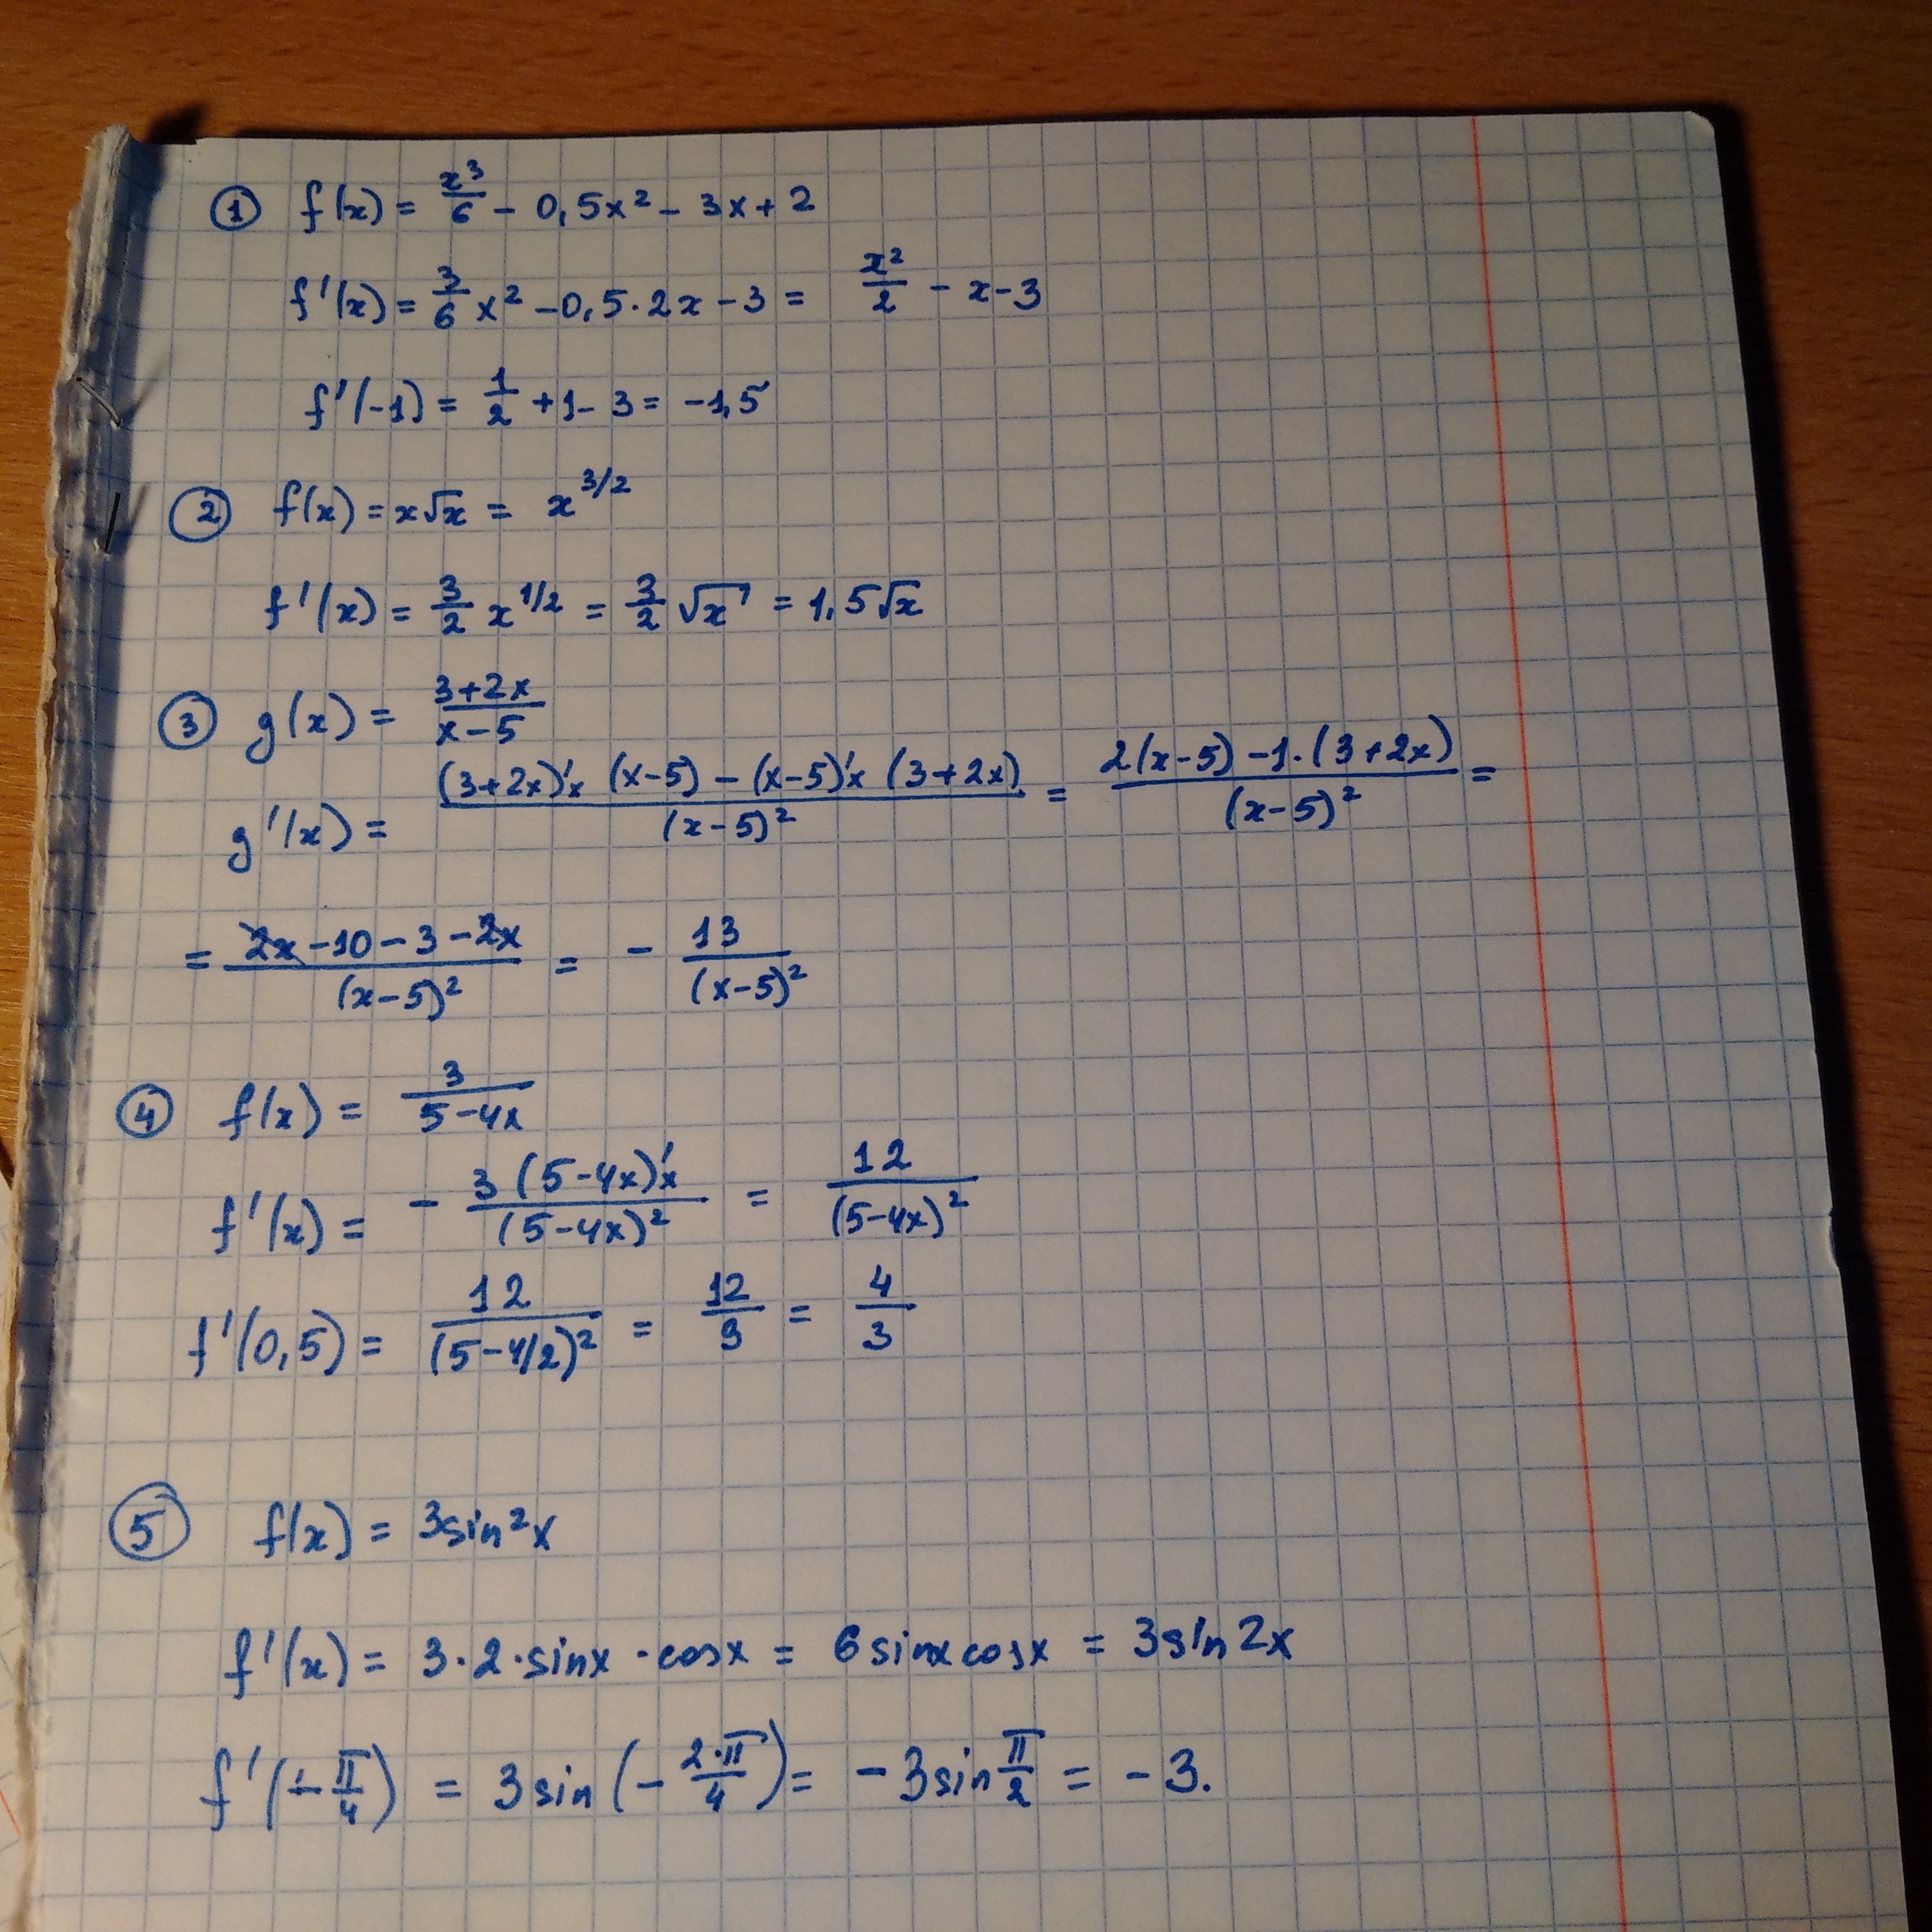 ① f(x) = x³/6 - 0,5x² - 3x + 2
f'(x) = 3/6 x² - 0,5·2x - 3 = x²/2 - x - 3
f'(-1) = 1/2 + 1 - 3 = -1,5
② f(x) = x√x = x^(3/2)
f'(x) = 3/2 x^(1/2) = 3/2 √x = 1,5√x
③ g(x) = (3+2x)/(x-5)
g'(x) = ((3+2x)'x (x-5) - (x-5)'x (3+2x))/(x-5)² = (2(x-5) - 1·(3+2x))/(x-5)² =
= (2x - 10 - 3 - 2x)/(x-5)² = - 13/(x-5)²
④ f(x) = 3/(5-4x)
f'(x) = - 3(5-4x)'x/(5-4x)² = 12/(5-4x)²
f'(0,5) = 12/(5-4/2)² = 12/9 = 4/3
⑤ f(x) = 3sin²x
f'(x) = 3·2·sinx·cosx = 6sinxcosx = 3sin2x
f'(-π/4) = 3sin(-2·π/4) = -3sin π/2 = -3.